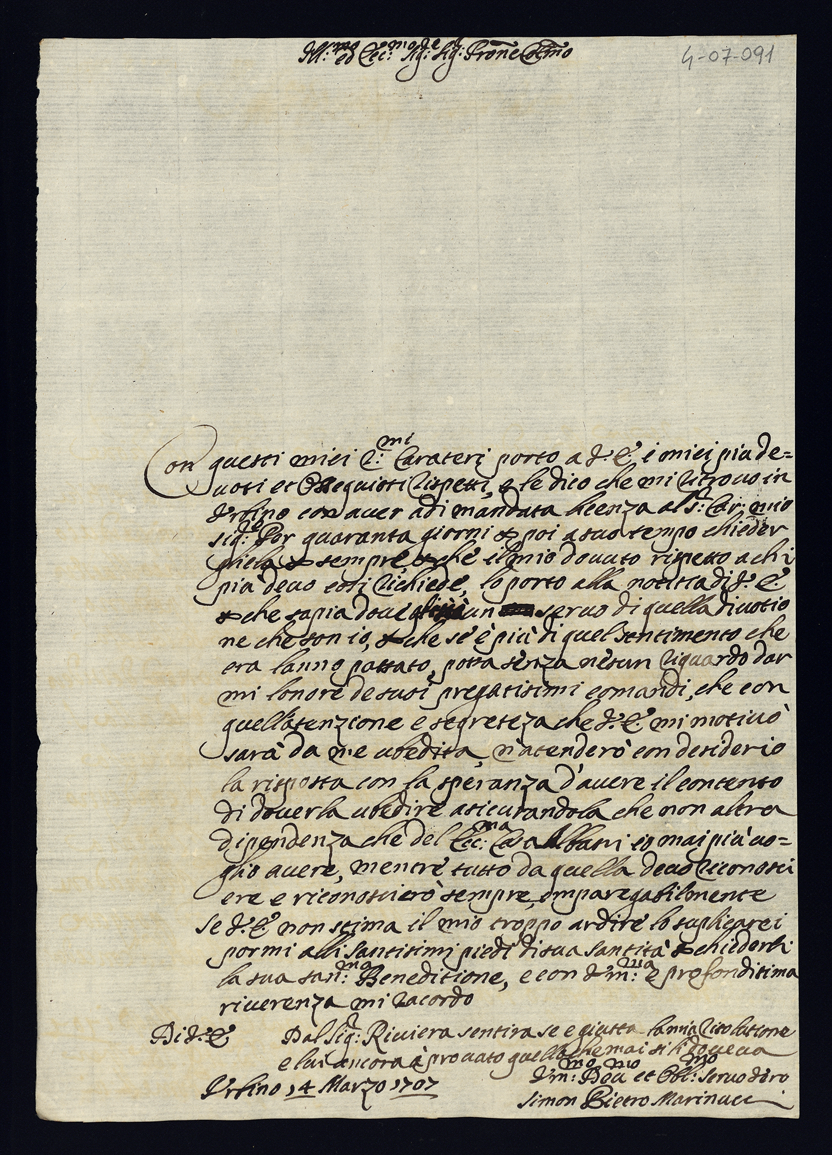 Ill:mo ed Ecc:mo Sig:re Sig: Prone Colmo
4-07-091
Con questi miei R:mi Carateri porto a V: E: i miei piu de=
uoti et Osseguiosi Rispetti, e le dico che mi ritrouo in
Vrbino con aver adimandata licenza al S: Car: mio
Sig:re Per quaranta giorni & poi a suo tempo chieder
gliela & sempre, & che il mio douuto rispetto a chi
piu deuo cosi richiede, lo porto alla notitia di V: E:
& che sapia doue un seruo di quella diuotio
ne che son io, & che se è più di quel sentimento che
era lanno passato, possa senza nesun riguardo dar
mi lonore de suoi pregatisimi comandi, che con
quellatenzione e segreteza che V: E: mi motiuò
sarà da me ubedita, n'atenderò con desiderio
la risposta con la speranza d'auere il contento
di douerla ubedire asicurandola che non altra
dipendenza che del Ecc:ma Casa Albani io mai più uo=
glio auere, mentre tutto da quella deuo riconosci
ere e riconoscierò sempre, imparegabilmente
se V: E: non stima il mio troppo ardire lo suplicarei
pormi alli Santisimi piedi di sua Santità & chiederli
la sua san:ma Beneditione, e con V:m:ma e profondisima
riuerenza mi racordo
Di V: E: Dal Sig:r Riuiera sentira se e giusta la mia risolutione
e lui ancora a prouato quello che mai si li doueua
Vrbino 14 Marzo 1707
V:m:mo Deu:mo et Obl:mo seruo Vero
Simon Pietro Marinucci